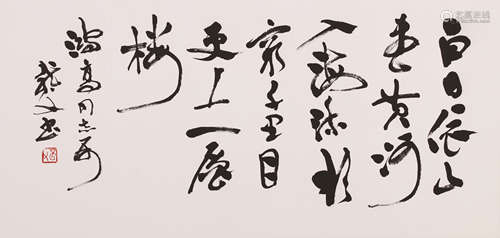 白日依山
尽黄河
入海流欲
穷千里目
更上一层
楼
高同志
书